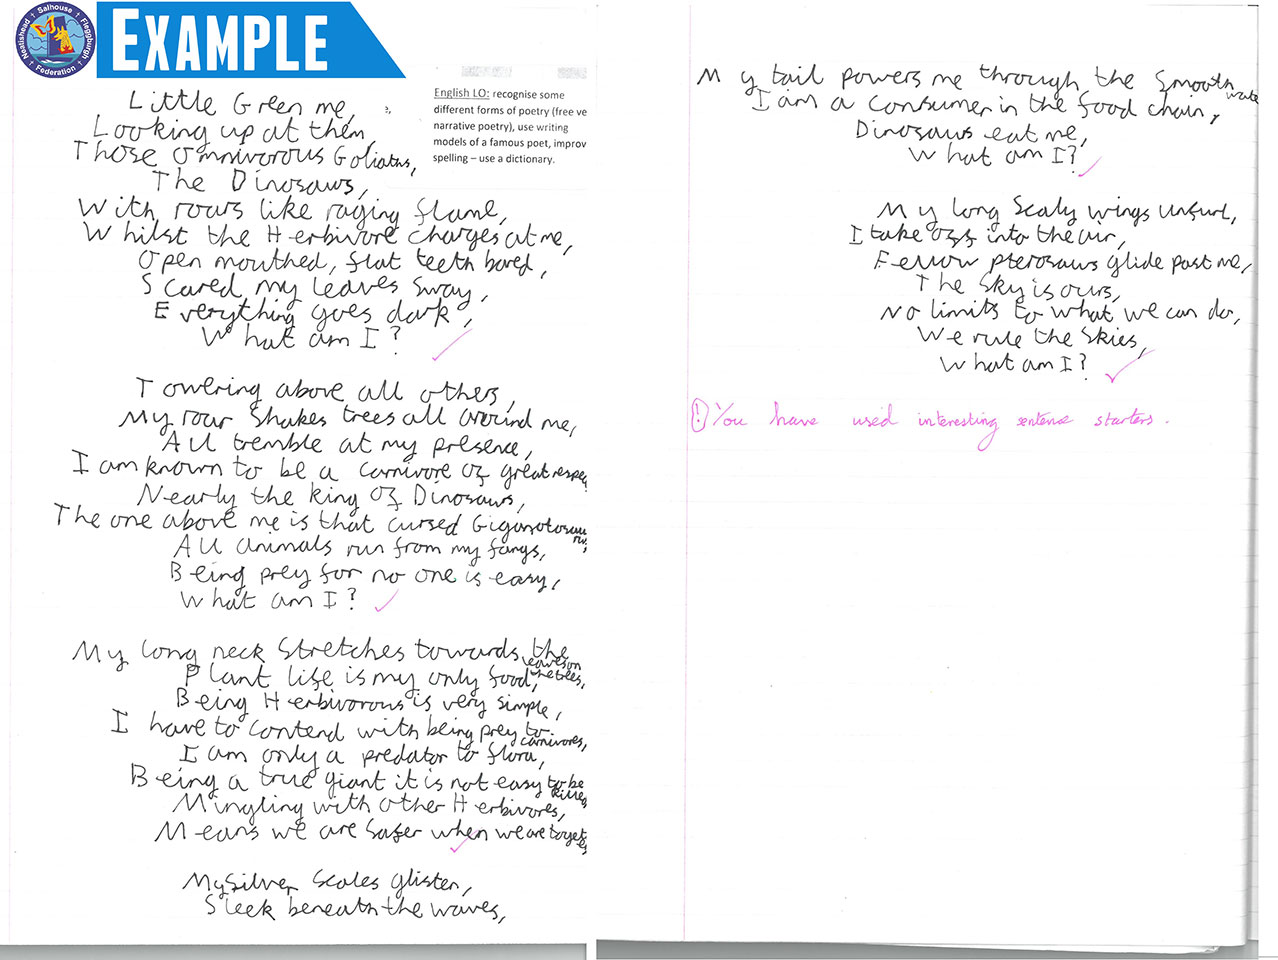 Neatishead
Salhouse
Fleggburgh
Federation
EXAMPLE
English LO: recognise some
different forms of poetry (free ve
narrative poetry), use writing
models of a famous poet, improv
spelling – use a dictionary.
e,
Little Green me,
Looking up at them,
Those Omnivorous Goliaths,
The Dinosaurs,
With roars like raging flame,
Whilst the Herbivore charges at me,
Open mouthed, flat teeth bared,
Scared, my leaves sway,
Everything goes dark,
What am I?
Towering above all others,
My roar shakes trees all around me,
All tremble at my presence,
I am known to be a carnivore of great respe
Nearly the king of Dinosaurs,
The one above me is that cursed Giganotosau
rus,
All animals run from my fangs,
Being prey for no one is easy,
What am I?
My long neck stretches towards the
leaves on
the trees,
Plant life is my only food,
Being Herbivorous is very simple,
I have to contend with being prey to
carnivores,
I am only a predator to flora,
Being a true giant it is not easy to be
killed
Mingling with other Herbivores,
Means we are safer when we are together
My silver scales glisten,
Sleek beneath the waves,
My tail powers me through the smooth
water
I am a consumer in the food chain,
Dinosaurs eat me,
What am I?
My long scaly wings unfurl,
I take off into the air,
Fellow pterosaurs glide past me,
The sky is ours,
No limits to what we can do,
We rule the skies,
What am I?
! You have used interesting sentence starters.